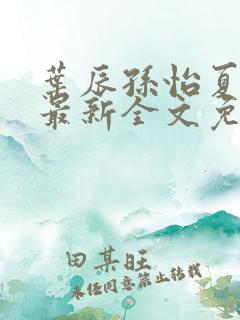 葉辰孫怡夏
最新全文免
田某旺
未经同意禁止转载